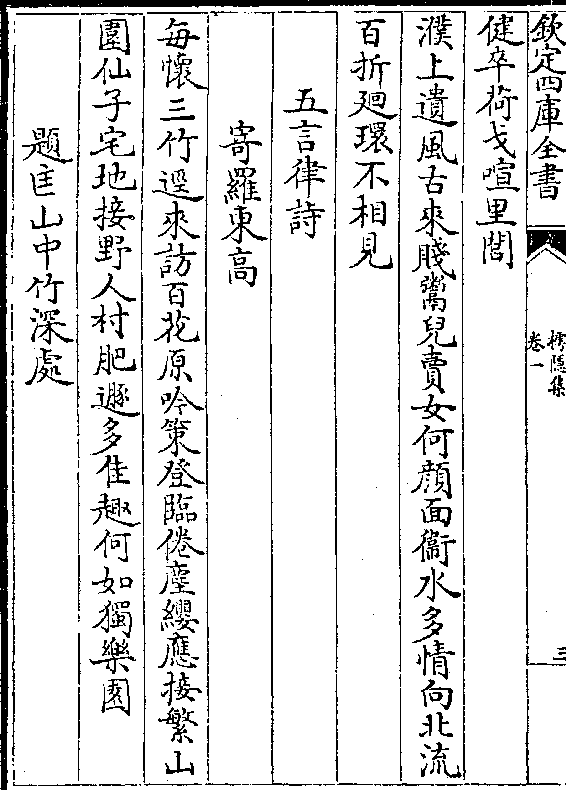 欽定四庫全書
樗隠集
卷一
三
健卒荷戈喧里閭
濮上遺風古來賤鬻兒賣女何顔面衞水多情向北流
百折廻環不相見
五言律詩
寄羅東高
每懷三竹逕來訪百花原吟策登臨倦塵纓應接繁山
園仙子宅地接野人村肥遯多佳趣何如獨樂園
題匡山中竹深處